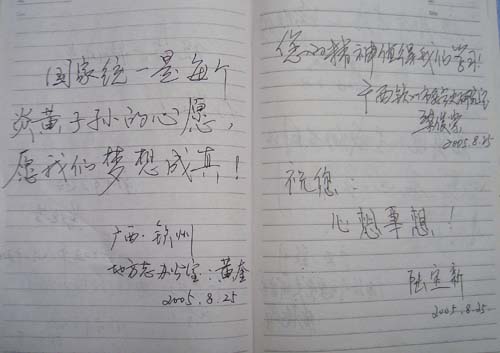 国家统一是每个
炎黄子孙的心愿,
愿我们梦想成真!
广西·钦州
地方志办公室:黄奎
2005.8.25
您的精神值得我们学习!
广西钦州市
2005.8.25
祝您:
心想事想!
陆宝新
2005.8.25